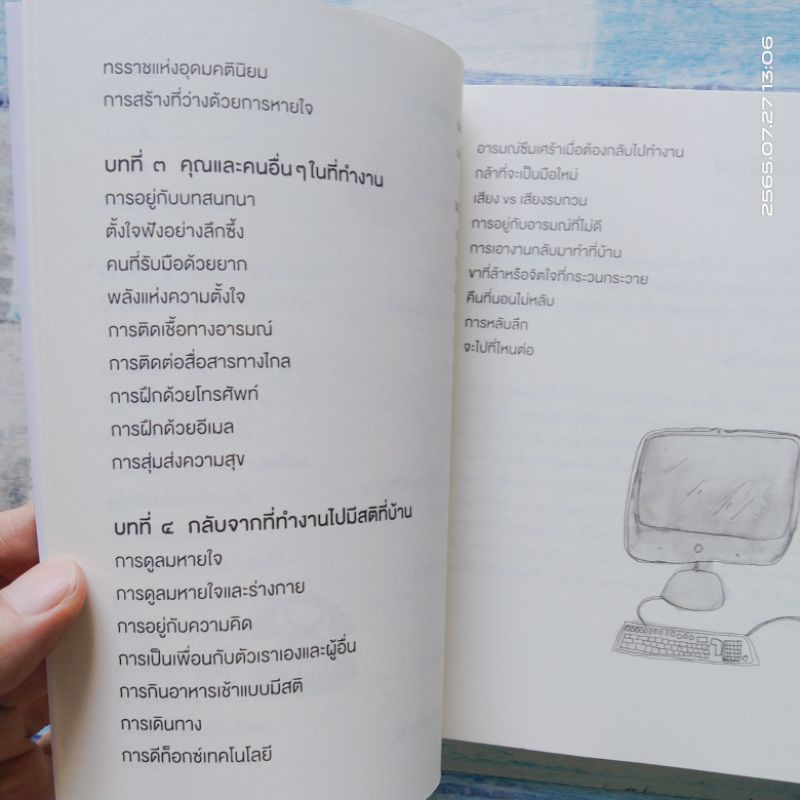 ทรราชแห่งอุดมคตินิยม
การสร้างที่ว่างด้วยการหายใจ
บทที่ ๓ คุณและคนอื่นๆในที่ทำงาน
การอยู่กับบทสนทนา
ตั้งใจฟังอย่างลึกซึ้ง
คนที่รับมือด้วยยาก
พลังแห่งความตั้งใจ
การติดเชื้อทางอารมณ์
การติดต่อสื่อสารทางไกล
การฝึกด้วยโทรศัพท์
การฝึกด้วยอีเมล
การสุ่มส่งความสุข
บทที่ ๔ กลับจากที่ทำงานไปมีสติที่บ้าน
การดูลมหายใจ
การดูลมหายใจและร่างกาย
การอยู่กับความคิด
การเป็นเพื่อนกับตัวเราเองและผู้อื่น
การกินอาหารเช้าแบบมีสติ
การเดินทาง
การดีท็อกซ์เทคโนโลยี
อารมณ์ซึมเศร้าเมื่อต้องกลับไปทำงาน
กล้าที่จะเป็นมือใหม่
เสียง vs เสียงรบกวน
การอยู่กับอารมณ์ที่ไม่ดี
การเอางานกลับมาทำที่บ้าน
ขาที่ล้าหรือจิตใจที่กระวนกระวาย
คืนที่นอนไม่หลับ
การหลับลึก
จะไปที่ไหนต่อ
2565.07.27 13:06